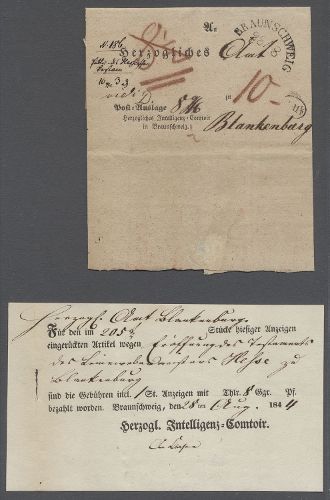 An
Herzogliches Amt
BRAUNSCHWEIG
zu 10
Post-Auslage 8
Herzogliches Intelligenz-Comtoir
in Braunschweig.
Blankenburg
Herzogl. Amt Blankenburg.
Für den im 205 Stücke hiesiger Anzeigen
eingerückten Artikel wegen Eröffnung des Testaments
des Leinewebermeisters Hesse zu
Blankenburg
sind die Gebühren incl. 1 St. Anzeigen mit Thlr. 8 Ggr. Pf.
bezahlt worden. Braunschweig, den 28ten Aug. 1844
Herzogl. Intelligenz-Comtoir.